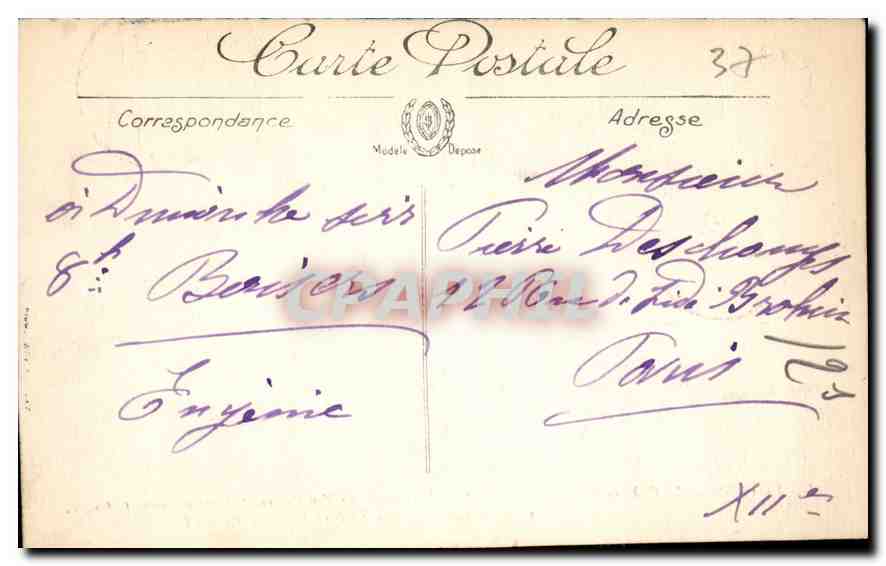 Carte Postale
37
Correspondance
Adresse
Modèle Déposé
à Dimanche soir
8h
Baisers
Eugénie
Monsieur
Pierre Deschamps
12 Rue de Sidi Brahim
Paris
12e
XIIe
CPAPHIL